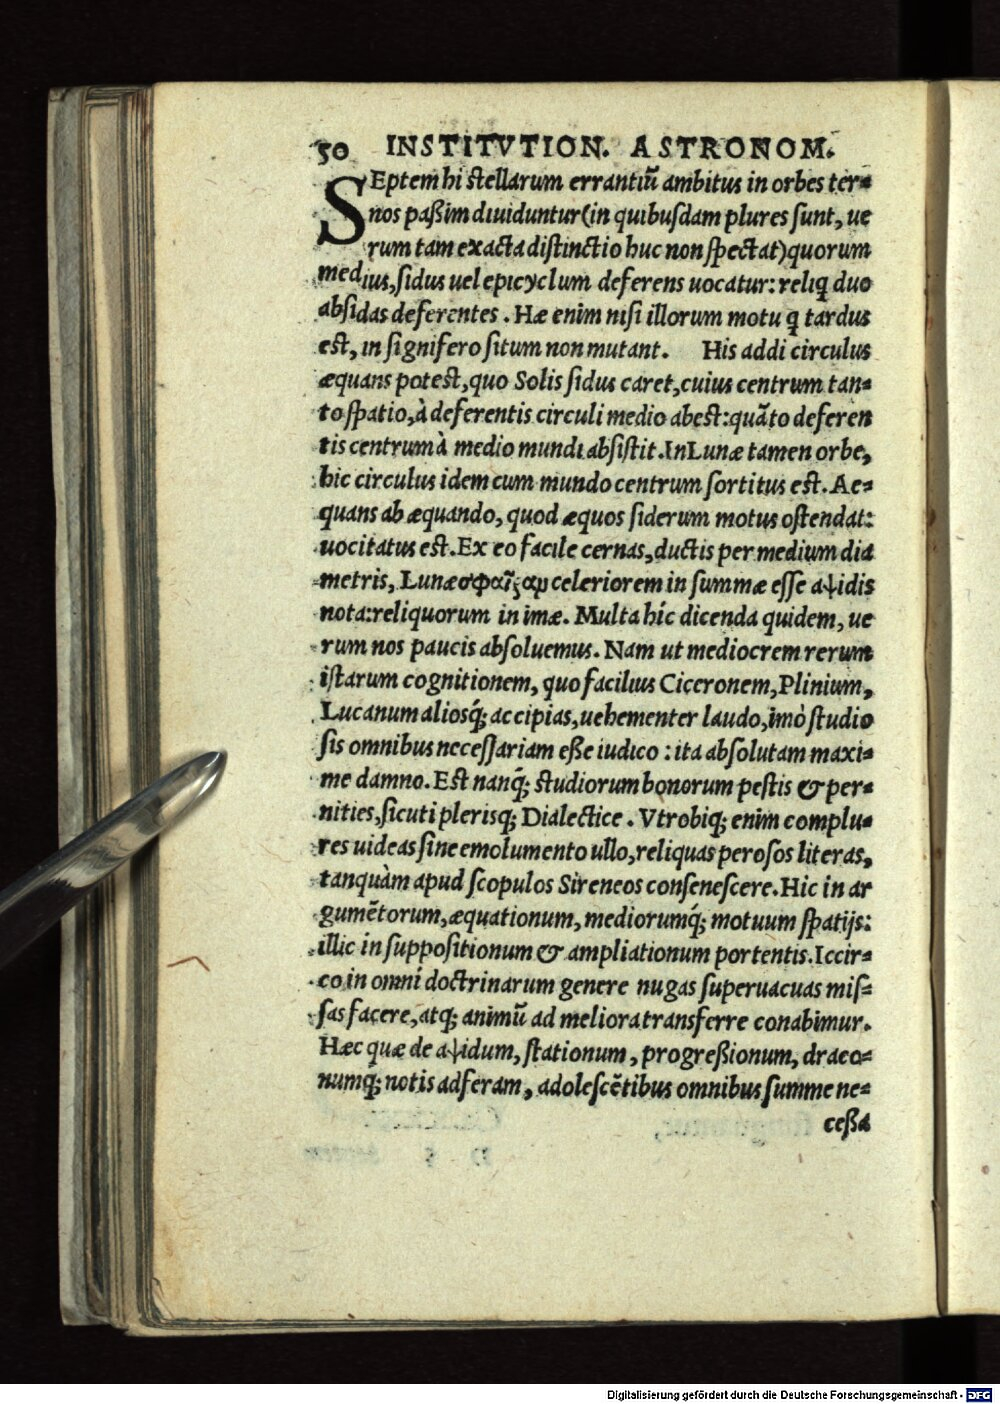 50 INSTITVTION. ASTRONOM.
SEptem hi stellarum errantiũ ambitus in orbes ter=
nos paßim diuiduntur(in quibusdam plures sunt, ue
rum tam exacta distinctio huc non spectat)quorum
medius, sidus uel epicyclum deferens uocatur: reliq duo
absidas deferentes. Hæ enim nisi illorum motu q tardus
est, in signifero situm non mutant. His addi circulus
æquans potest, quo Solis sidus caret, cuius centrum tan=
to spatio, à deferentis circuli medio abest: quãto deferen
tis centrum à medio mundi absistit. In Lunæ tamen orbe,
hic circulus idem cum mundo centrum sortitus est. Ae=
quans ab æquando, quod æquos siderum motus ostendat:
uocitatus est. Ex eo facile cernas, ductis per medium dia
metris, Lunæ celeriorem in summæ esse aψidis
nota: reliquorum in imæ. Multa híc dicenda quidem, ue
rum nos paucis absoluemus. Nam ut mediocrem rerum
istarum cognitionem, quo facilius Ciceronem, Plinium,
Lucanum aliosq́; accipias, uehementer laudo, imò studio
sis omnibus necessariam eße iudico: ita absolutam maxi=
me damno. Est nanq́; studiorum bonorum pestis & per=
nities, sicuti plerisq; Dialectice. Vtrobiq; enim complu=
res uideas sine emolumento ullo, reliquas perosos literas,
tanquàm apud scopulos Sireneos consenescere. Hic in ar
gumẽtorum, æquationum, mediorumq́; motuum spatijs:
illic in suppositionum & ampliationum portentis. Iccir=
co in omni doctrinarum genere nugas superuacuas mis=
sas facere, atq; animũ ad meliora transferre conabimur.
Hæc quæ de aψidum, stationum, progreßionum, draco=
numq́; notis adferam, adolescẽtibus omnibus summe ne=
ceßa
Digitalisierung gefördert durch die Deutsche Forschungsgemeinschaft - DFG